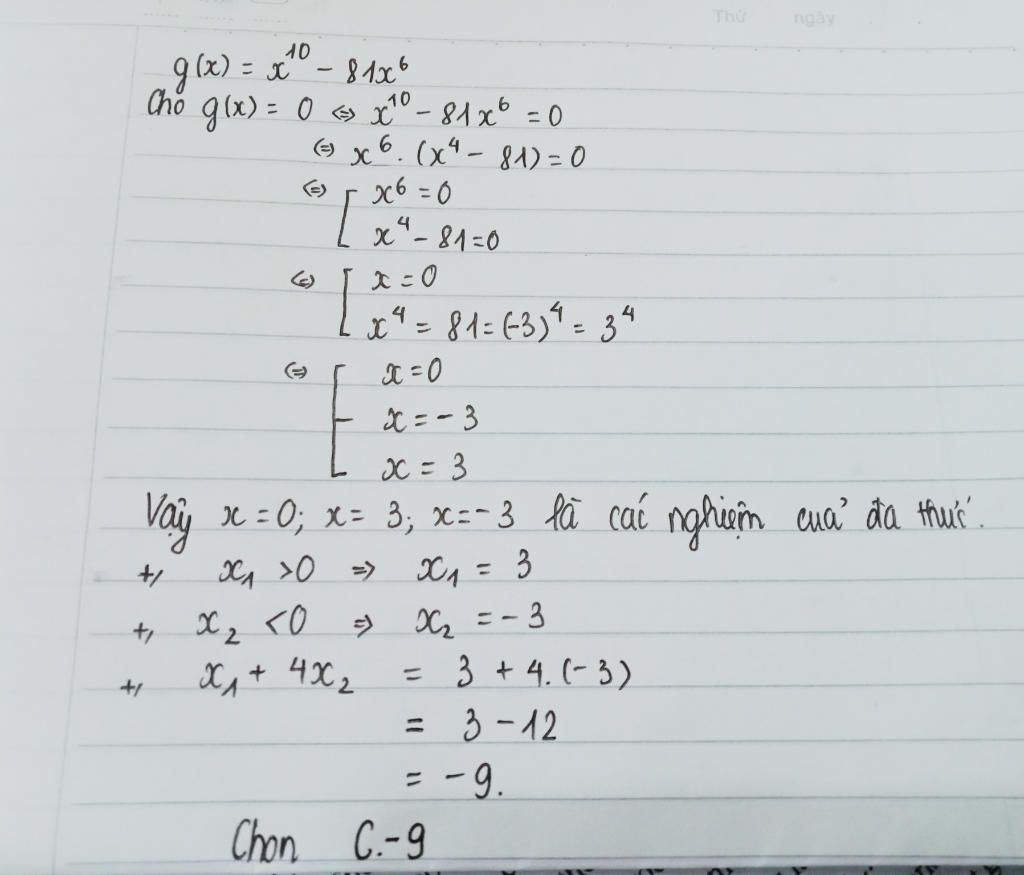 Thứ ngày
g(x) = x¹⁰ - 81x⁶
Cho g(x) = 0 ⇔ x¹⁰ - 81x⁶ = 0
⇔ x⁶. (x⁴ - 81) = 0
⇔ [ x⁶ = 0
x⁴ - 81 = 0
⇔ [ x = 0
x⁴ = 81 = (-3)⁴ = 3⁴
⇔ [ x = 0
x = - 3
x = 3
Vậy x = 0; x = 3; x = - 3 là các nghiệm của đa thức.
+, x₁ > 0 ⇒ x₁ = 3
+, x₂ < 0 ⇒ x₂ = - 3
+, x₁ + 4x₂ = 3 + 4. (- 3)
= 3 - 12
= - 9.
Chon C. -9